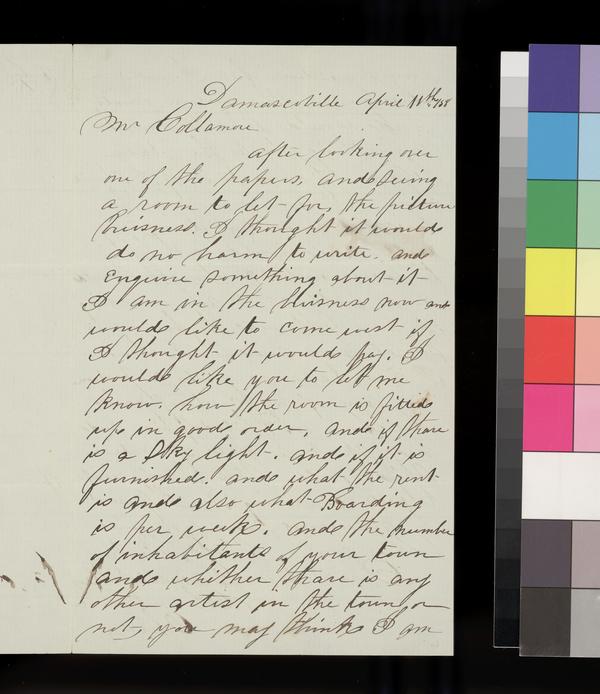 Damascoville April 18th/58
Mr Collamore
after looking over
one of the papers, and seing
a room to let for, the picture
buisness. I thought it would
do no harm to write. and
Enquire something about it
I am in the buisness now and
would like to come west if
I thought it would pay. I
would like you to let me
know. how the room is fitted
up in good order, and if thare
is a Sky light. and if it is
furnished. and what the rent
is and also what Boarding
is per week. and the number
of inhabitants of your town
and whither thare is any
other artist in the town or
not, you may think I am